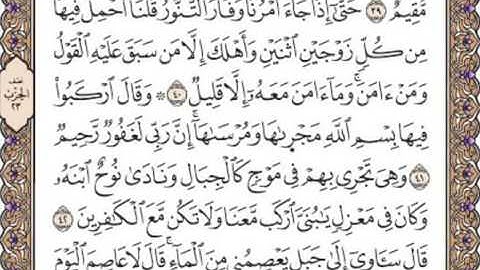 مُّقِيمٌ ٣٩ حَتَّىٰٓ إِذَا جَآءَ أَمۡرُنَا وَفَارَ ٱلتَّنُّورُ قُلۡنَا ٱحۡمِلۡ فِيهَا
مِن كُلّٖ زَوۡجَيۡنِ ٱثۡنَيۡنِ وَأَهۡلَكَ إِلَّا مَن سَبَقَ عَلَيۡهِ ٱلۡقَوۡلُ
وَمَنۡ ءَامَنَۚ وَمَآ ءَامَنَ مَعَهُۥٓ إِلَّا قَلِيلٞ ٤٠ ۞ وَقَالَ ٱرۡكَبُواْ
فِيهَا بِسۡمِ ٱللَّهِ مَجۡرٜىٰهَا وَمُرۡسَىٰهَآۚ إِنَّ رَبِّي لَغَفُورٞ رَّحِيمٞ
٤١ وَهِيَ تَجۡرِي بِهِمۡ فِي مَوۡجٖ كَٱلۡجِبَالِ وَنَادَىٰ نُوحٌ ٱبۡنَهُۥ
وَكَانَ فِي مَعۡزِلٖ يَٰبُنَيَّ ٱرۡكَب مَّعَنَا وَلَا تَكُن مَّعَ ٱلۡكَٰفِرِينَ ٤٢
قَالَ سَـَٔاوِيٓ إِلَىٰ جَبَلٖ يَعۡصِمُنِي مِنَ ٱلۡمَآءِۚ قَالَ لَا عَاصِمَ ٱلۡيَوۡمَ
نصف
الحزب
٢٣